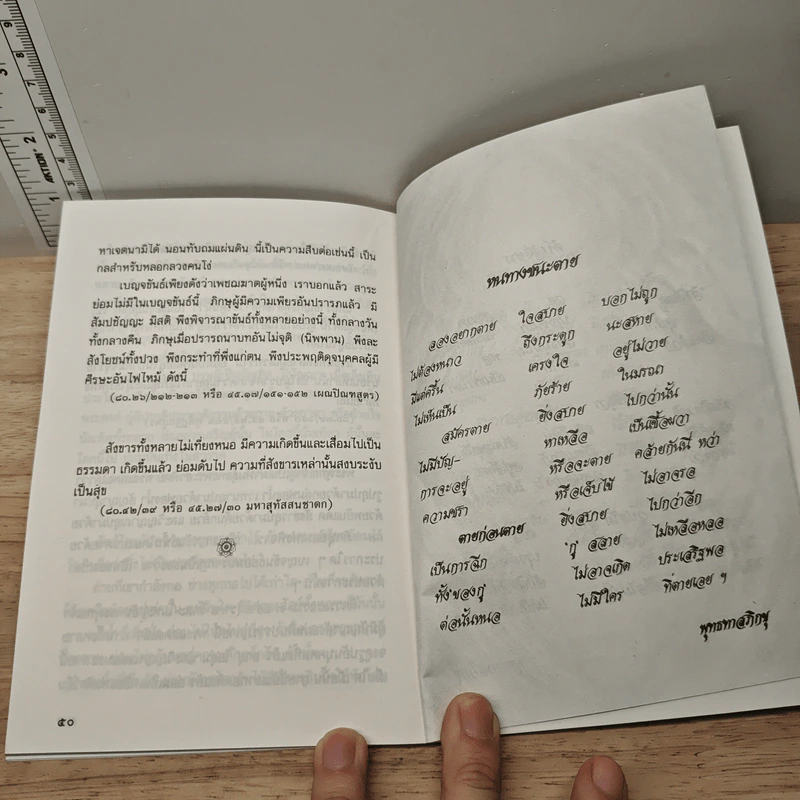 หาเจตนามิได้ นอนทับถมแผ่นดิน นี้เป็นความสืบต่อเช่นนี้ เป็น
กลสำหรับหลอกลวงคนโง่
เบญจขันธ์เพียงดังว่าเพชฌฆาตผู้หนึ่ง เราบอกแล้ว สาระ
ย่อมไม่มีในเบญจขันธ์นี้ ภิกษุผู้มีความเพียรอันปรารภแล้ว มี
สัมปชัญญะ มีสติ พึงพิจารณาขันธ์ทั้งหลายอย่างนี้ ทั้งกลางวัน
ทั้งกลางคืน ภิกษุเมื่อปรารถนาบทอันไม่จุติ (นิพพาน) พึงละ
สังโยชน์ทั้งปวง พึงกระทำที่พึ่งแก่ตน พึงประพฤติดุจบุคคลผู้มี
ศีรษะอันไฟไหม้ ดังนี้
(๘๐.๒๖/๒๑๒-๒๑๓ หรือ ๔๕.๑๗/๑๕๑-๑๕๒ เผณปิณฑสูตร)
สังขารทั้งหลายไม่เที่ยงหนอ มีความเกิดขึ้นและเสื่อมไปเป็น
ธรรมดา เกิดขึ้นแล้ว ย่อมดับไป ความที่สังขารเหล่านั้นสงบระงับ
เป็นสุข
(๘๐.๔๒/๓๙ หรือ ๔๕.๒๗/๓๐ มหาสุทัสสนชาดก)
๕๐
หนทางชนะตาย
ลองอยากตาย ใจสบาย บอกไม่ถูก
ไม่ต้องหนาว ถึงกระดูก นะสหาย
มีแต่ครื้น เครงใจ อยู่ไม่วาย
ไม่เห็นเป็น ภัยร้าย ในมรณา
สมัครตาย ยิ่งสบาย ไปกว่านั้น
ไม่มีปัญ- หาเหลือ เป็นเชื้อบวา
การจะอยู่ หรือจะตาย คล้ายกันนี่ หว่า
ความชรา หรือเจ็บไข้ ไม่อาจรอ
ตายก่อนตาย ยิ่งสบาย ไปกว่าอีก
เป็นการฉีก 'กู' สลาย ไม่เหลือหลอ
ทั้ง'ของกู' ไม่อาจเกิด ประเสริฐพอ
ต่อนั้นหนอ ไม่มีใคร ที่ตายเอย ฯ
พุทธทาสภิกขุ
1
2
3
9
AKTION